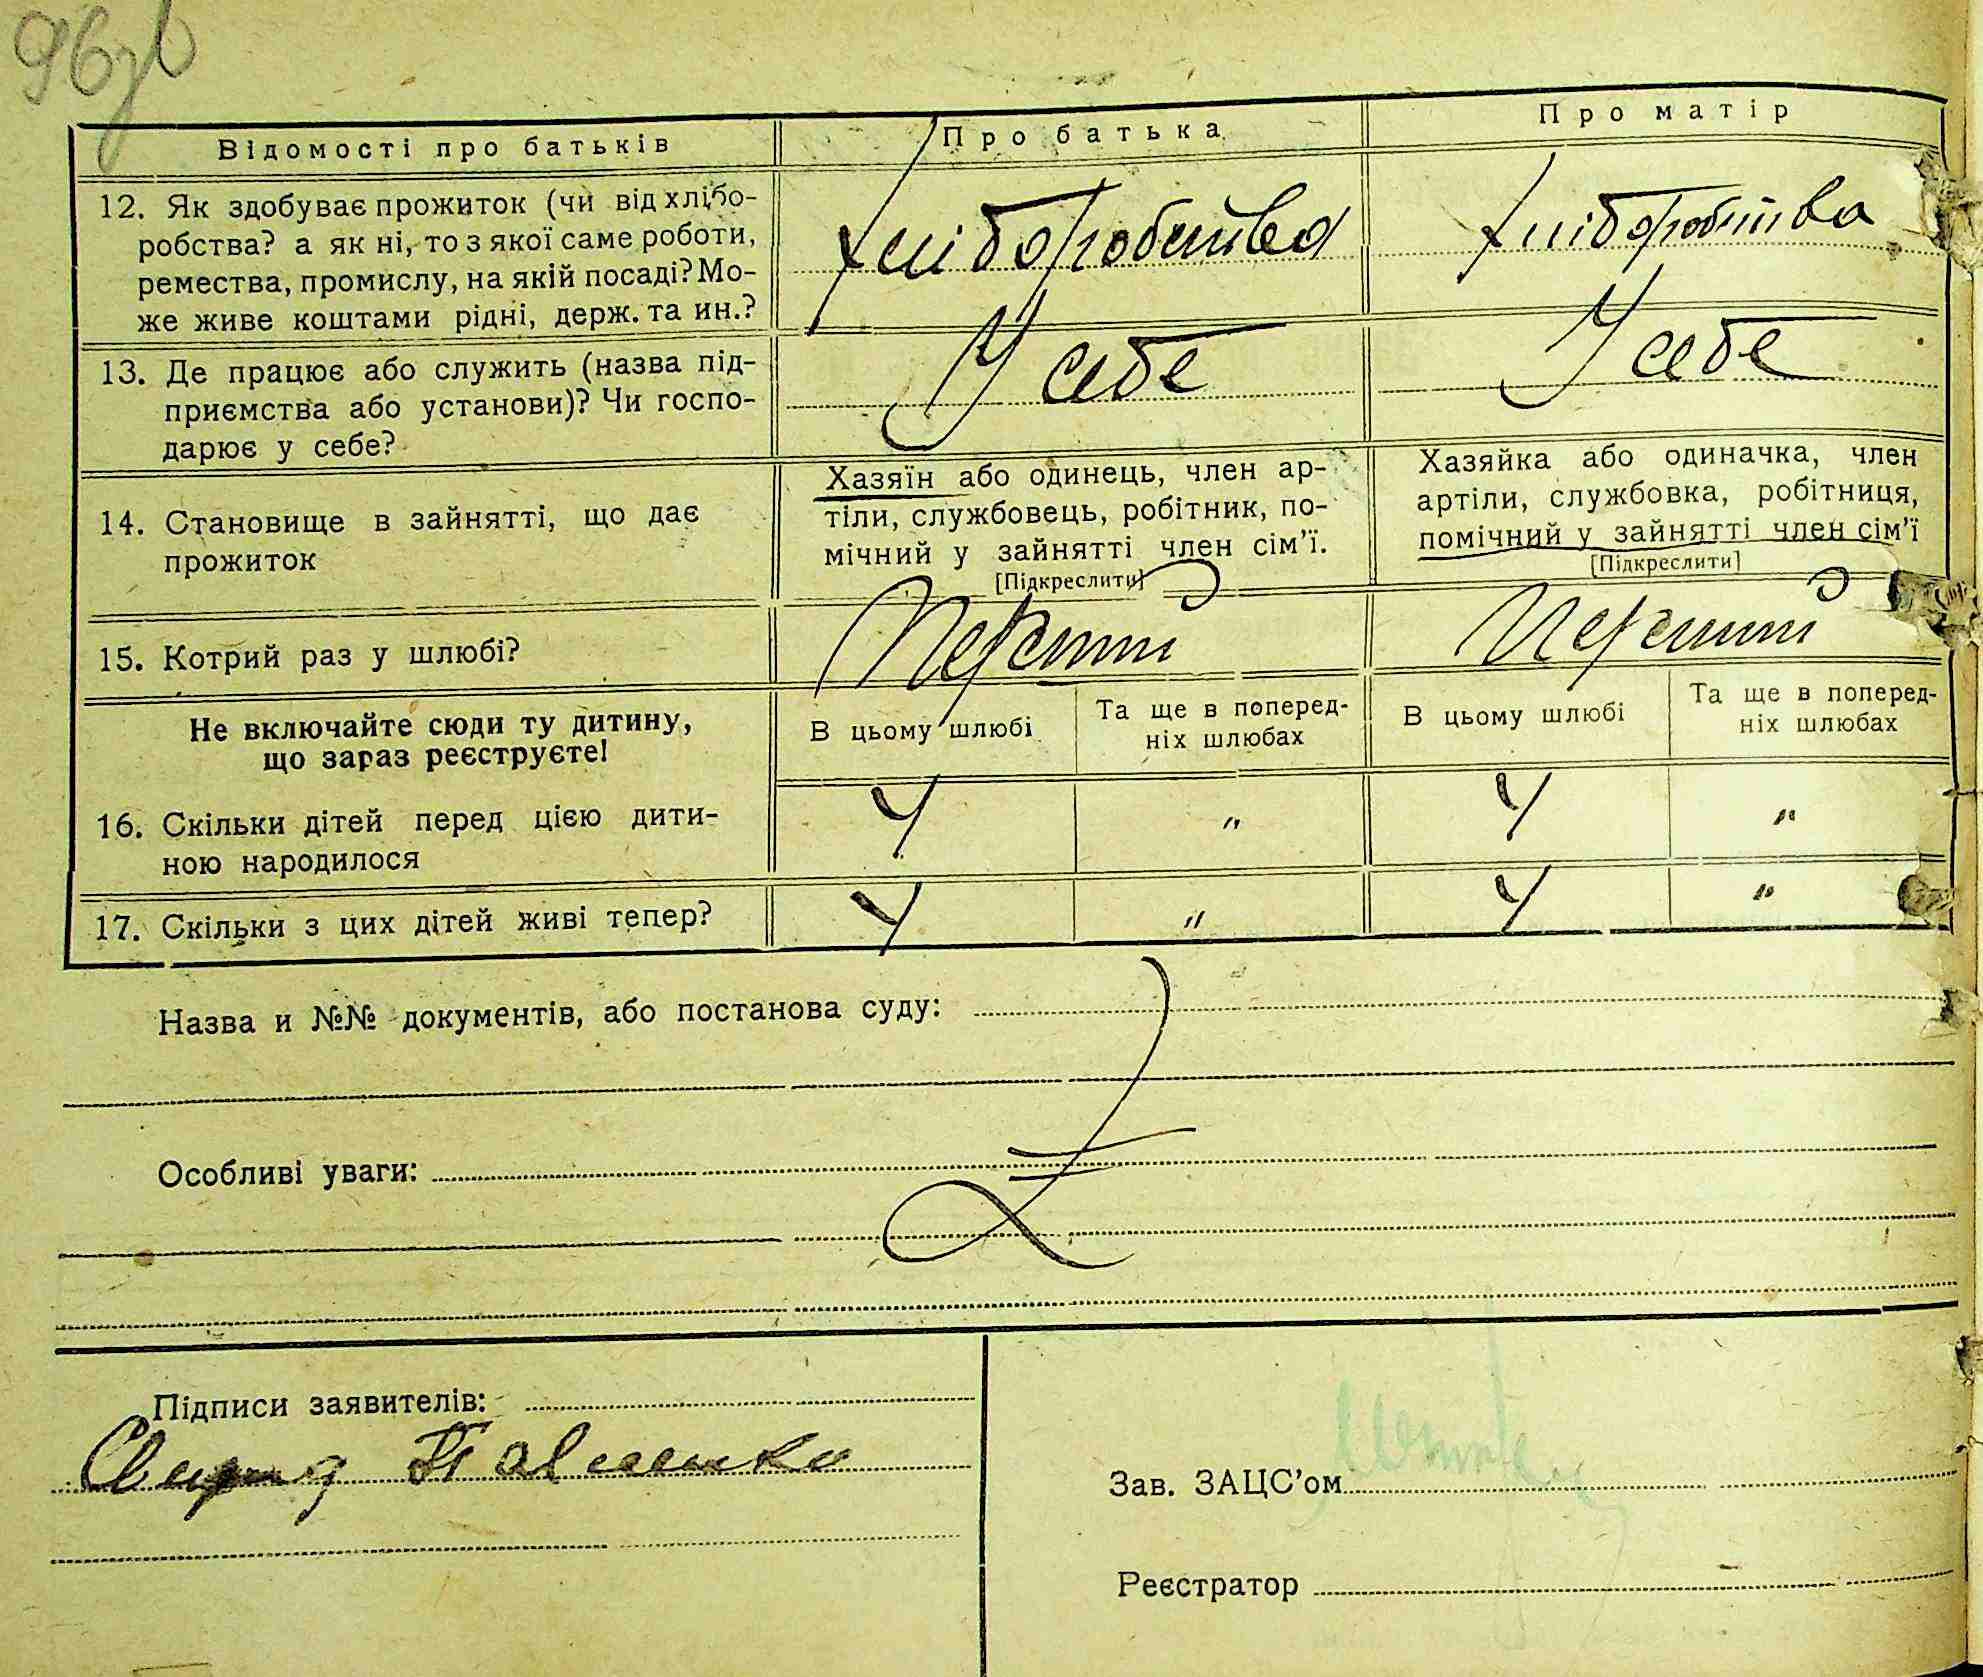 96зв
Відомості про батьків
Про батька
Про матір
12. Як здобуває прожиток (чи від хлібо-
робства? а як ні, то з якої саме роботи,
ремества, промислу, на якій посаді? Мо-
же живе коштами рідні, держ. та ин.?
хліборобства
хліборобства
13. Де працює або служить (назва під-
приємства або установи)? Чи госпо-
дарює у себе?
У себе
У себе
14. Становище в зайнятті, що дає
прожиток
Хазяїн або одинець, член ар-
тіли, службовець, робітник, по-
мічний у зайнятті член сім'ї.
[Підкреслити]
Хазяйка або одиначка, член
артіли, службовка, робітниця,
помічний у зайнятті член сім'ї
[Підкреслити]
15. Котрий раз у шлюбі?
Перший
Перший
Не включайте сюди ту дитину,
що зараз реєструєте!
В цьому шлюбі
Та ще в поперед-
ніх шлюбах
В цьому шлюбі
Та ще в поперед-
ніх шлюбах
16. Скільки дітей перед цією дити-
ною народилося
4
"
4
"
17. Скільки з цих дітей живі тепер?
4
"
4
"
Назва и №№ документів, або постанова суду:
Особливі уваги:
Підписи заявителів:
Свирид Павленко
Зав. ЗАЦС'ом
Реєстратор